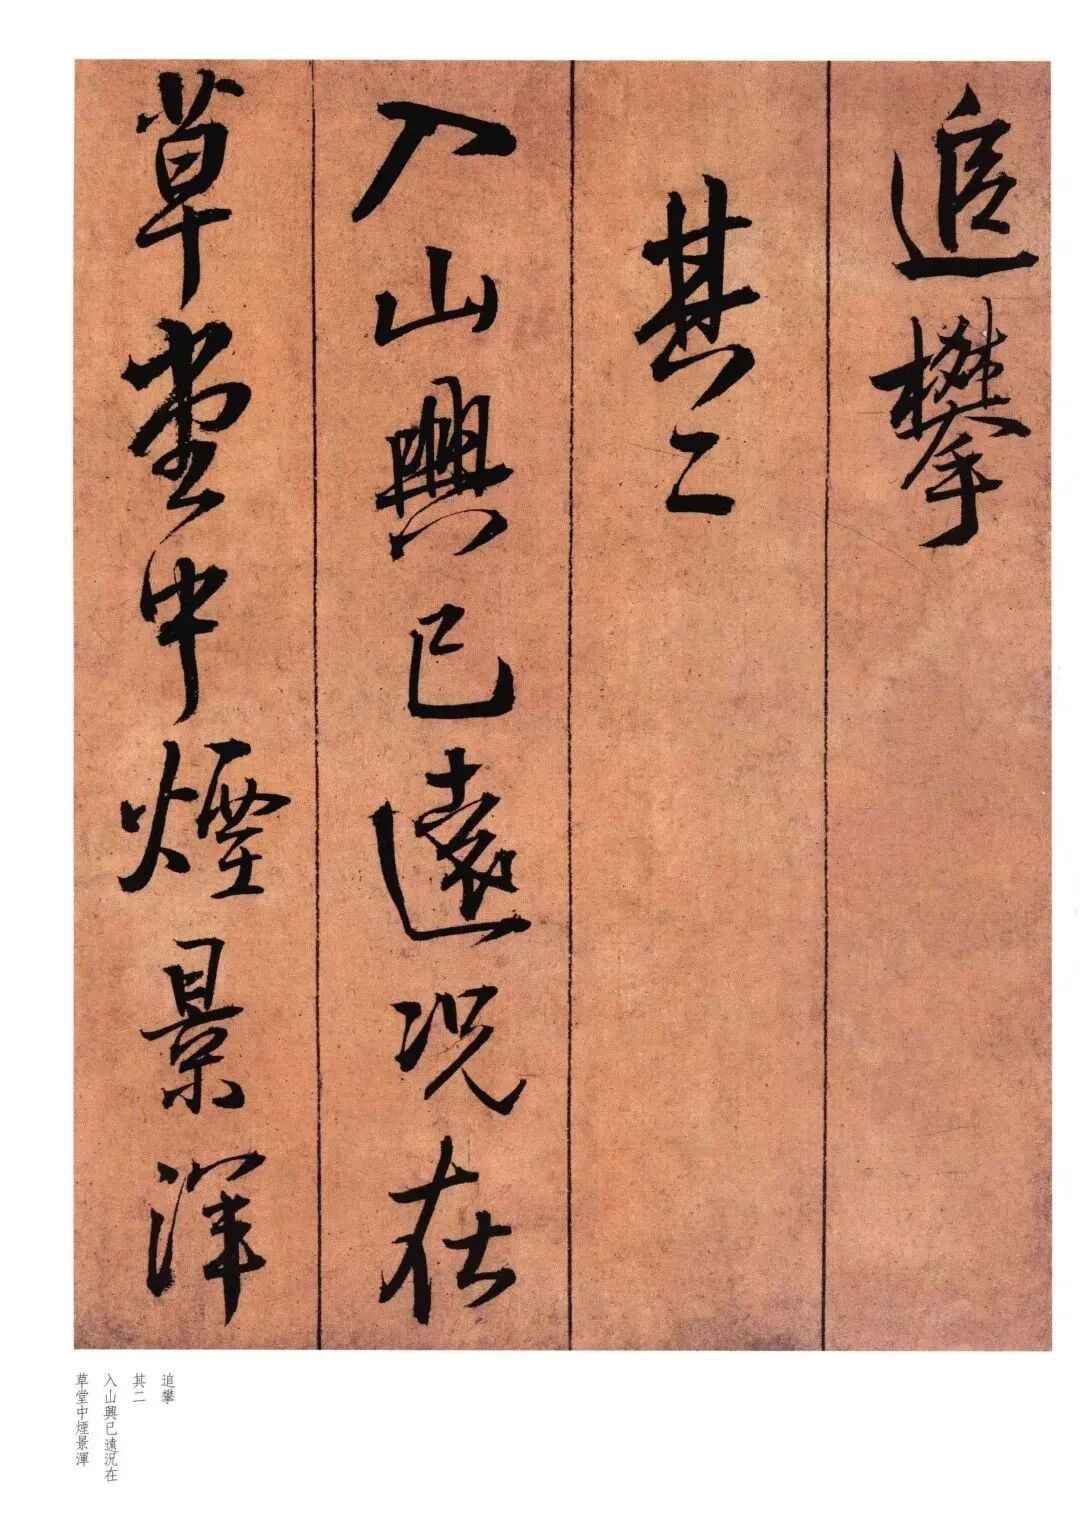 追攀
其二
入山興已遠況在
草堂中煙景渾
追攀
其二
入山興已遠況在
草堂中煙景渾